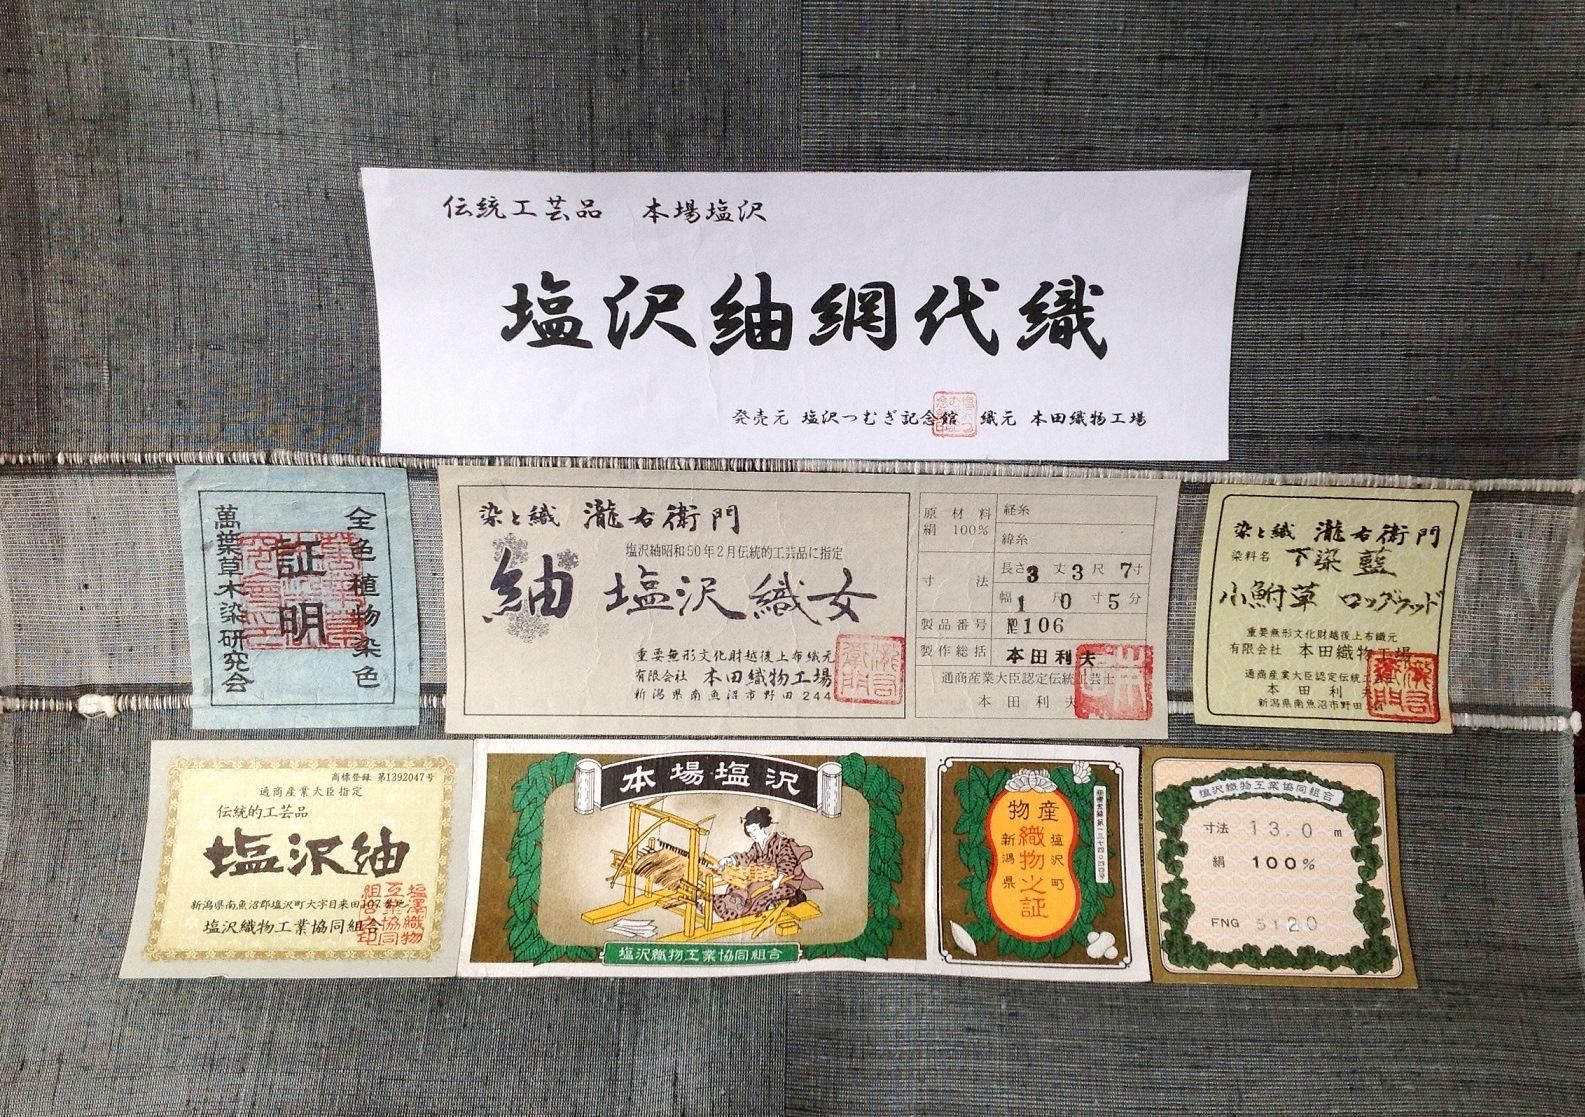 伝統工芸品　本場塩沢
塩沢紬網代織
発売元 塩沢つむぎ記念館 織元 本田織物工場
全色植物染色
証明
萬葉草木染研究会
染と織 瀧右衛門
塩沢紬昭和50年2月伝統的工芸品に指定
紬 塩沢織女
重要無形文化財越後上布織元
有限会社 本田織物工場
新潟県南魚沼市野田244
原材料 絹 100%
経糸
緯糸
寸法
長さ 3 丈 3 尺 7 寸
幅 1 尺 0 寸 5 分
製品番号 № 106
製作総括 本田利夫
通商産業大臣認定伝統工芸士
本田利夫
染と織 瀧右衛門
染料名 下染 藍
小鮒草 ロッグウッド
重要無形文化財越後上布織元
有限会社 本田織物工場
通商産業大臣認定伝統工芸士
本田利夫
新潟県南魚沼市野田
商標登録 第1392047号
通商産業大臣指定
伝統的工芸品
塩沢紬
新潟県南魚沼郡塩沢町大字目来田107番地
塩沢織物工業協同組合
塩澤織物工業協同組合印
本場塩沢
塩沢織物工業協同組合
産物
織物之証
塩沢町
新潟県
塩沢織物工業協同組合
寸法 13.0 m
絹 100%
FNG 5120